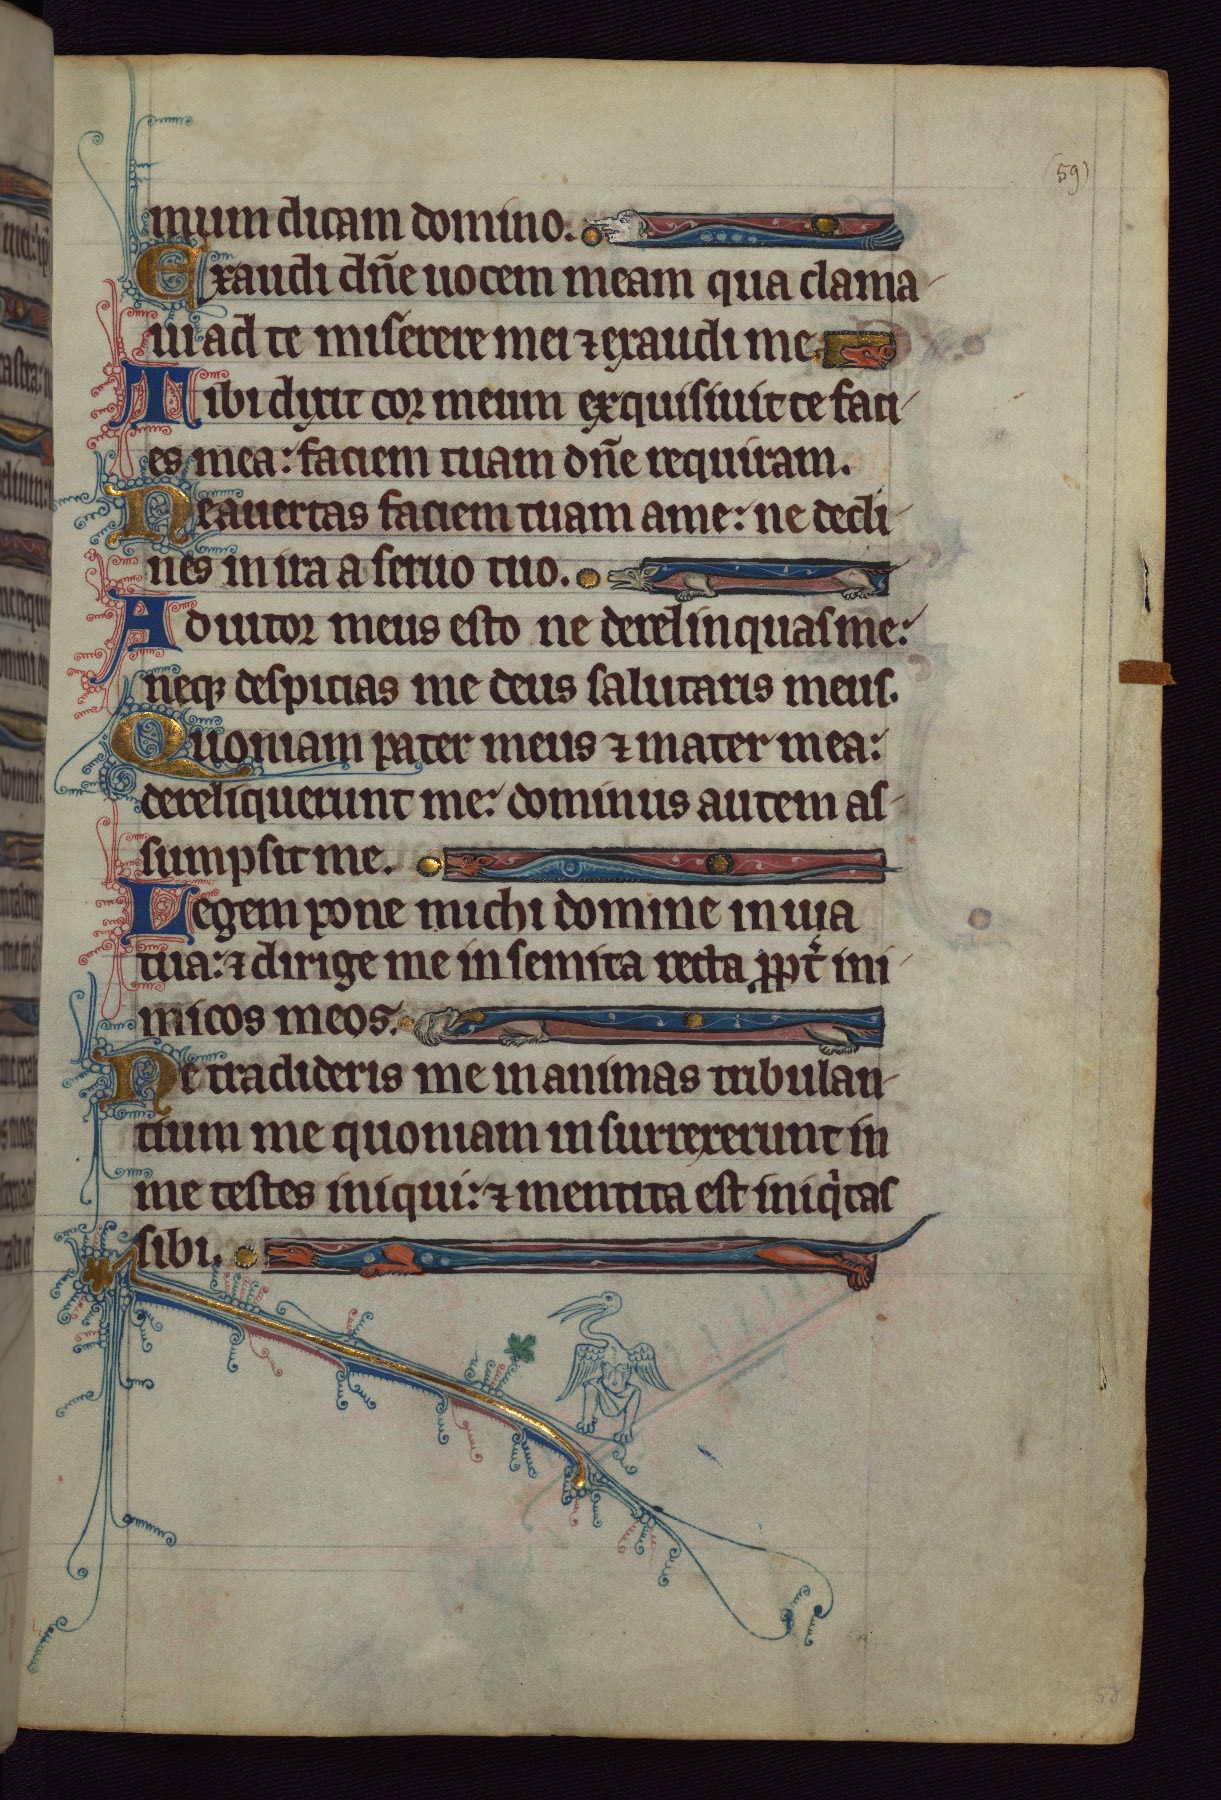 (59)
mum dicam domino.
Exaudi dñe uocem meam qua clama-
ui ad te miserere mei ⁊ exaudi me.
Tibi dixit cor meum exquisiuit te faci-
es mea: faciem tuam dñe requiram.
Ne auertas faciem tuam a me: ne decli-
nes in ira a seruo tuo.
Adiutor meus esto ne derelinquas me:
neqꝫ despicias me deus salutaris meus.
Quoniam pater meus ⁊ mater mea:
dereliquerunt me: dominus autem as-
sumpsit me.
Legem pone michi domine in uia
tua: ⁊ dirige me in semita recta ꝓpt̉ ini-
micos meos.
Ne tradideris me in animas tribulan-
tium me quoniam insurrexerunt in
me testes iniqui: ⁊ mentita est iniqͥtas
sibi.
58